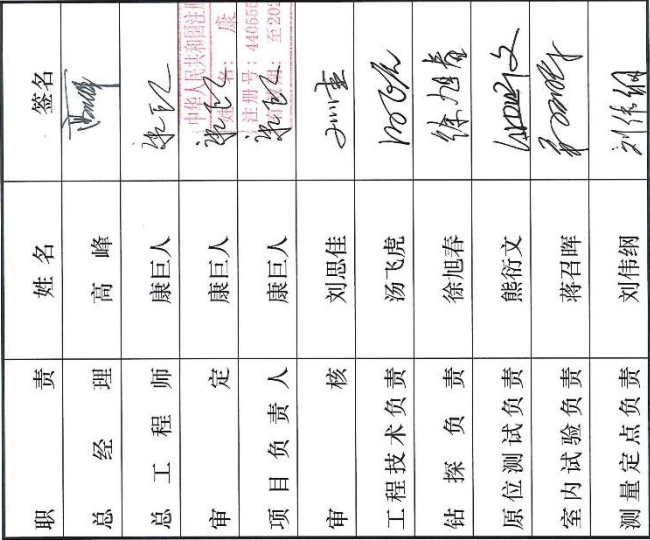 职责 姓名 签名
总经理 高峰
总工程师 康巨人
审定 康巨人
项目负责人 康巨人
审核 刘思佳
工程技术负责 汤飞虎
钻探负责 徐旭春 徐旭春
原位测试负责 熊衍文
室内试验负责 蒋召晖
测量定点负责 刘伟纲 刘伟纲
中华人民共和国注册
姓名:康
注册号:440555
至202